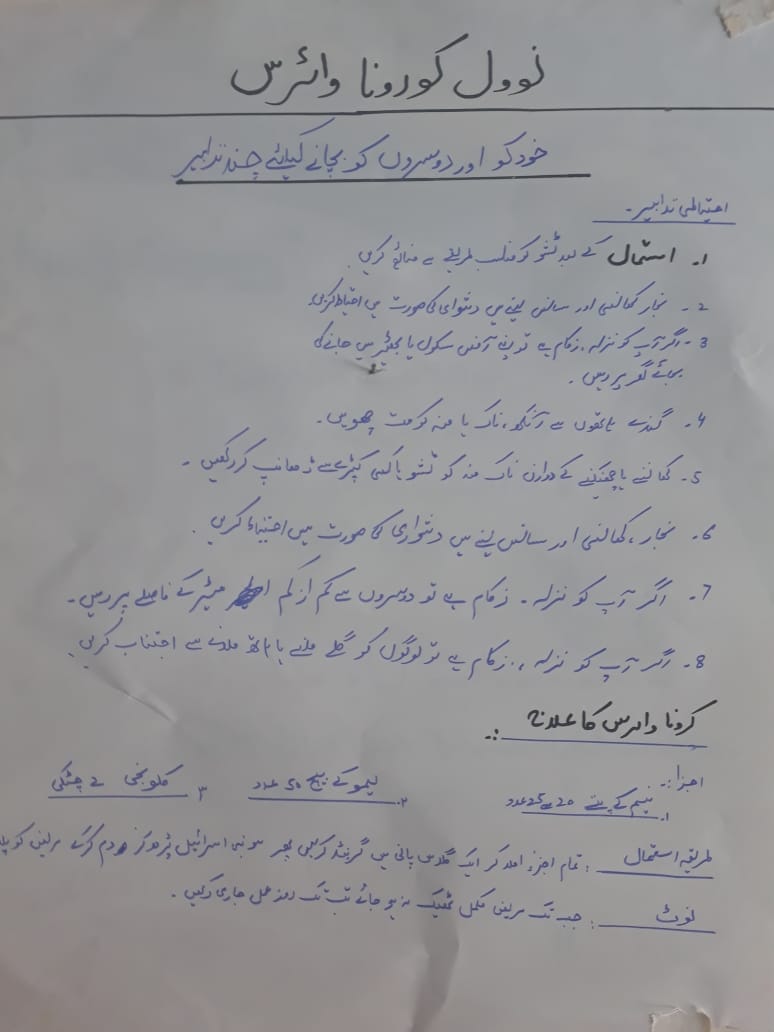 نوول کورونا وائرس
خود کو اور دوسروں کو بچانے کیلئے چند تدابیر
احتیاطی تدابیر۔
1. استمال کے بعد ٹشو کو مناسب طریقے سے ضائع کریں۔
2۔ بخار کھانسی اور سانس لینے میں دشواری کی صورت میں احتیاط کریں۔
3۔ اگر آپ کو نزلہ، زکام ہے تو اپنے آفس سکول یا بھیڑ میں جانے کی
بجائے گھر پر رہیں۔
4۔ گندے ہاتھوں سے آنکھ، ناک یا منہ کو مت چھویں۔
5۔ کھانسنے یا چھینکنے کے دوران ناک منہ کو ٹشو یا کسی کپڑے سے ڈھانپ کر رکھیں۔
6۔ بخار، کھانسی اور سانس لینے میں دشواری کی صورت میں احتیاط کریں۔
7۔ اگر آپ کو نزلہ۔ زکام ہے تو دوسروں سے کم از کم میٹر کے فاصلے پر رہیں۔
8۔ اگر آپ کو نزلہ، زکام ہے تو لوگوں کو گلے ملنے یا ہاتھ ملانے سے اجتناب کریں۔
کرونا وائرس کا علاج :۔
اجزا :۔
1. نیم کے پتے 20 سے 25 عدد ۲. لیمو کے بیج 50 عدد ۳ کلونجی چٹکی
طریقہ استمال : تمام اجزء ملا کر ایک گلاس پانی میں گرینڈ کریں پھر سو بنی اسرائیل پڑھ کر دم کرکے مریض کو
نوٹ : جب تک مریض مکمل ٹھیک نہ ہو جائے تب تک عمل جاری رکھیں۔